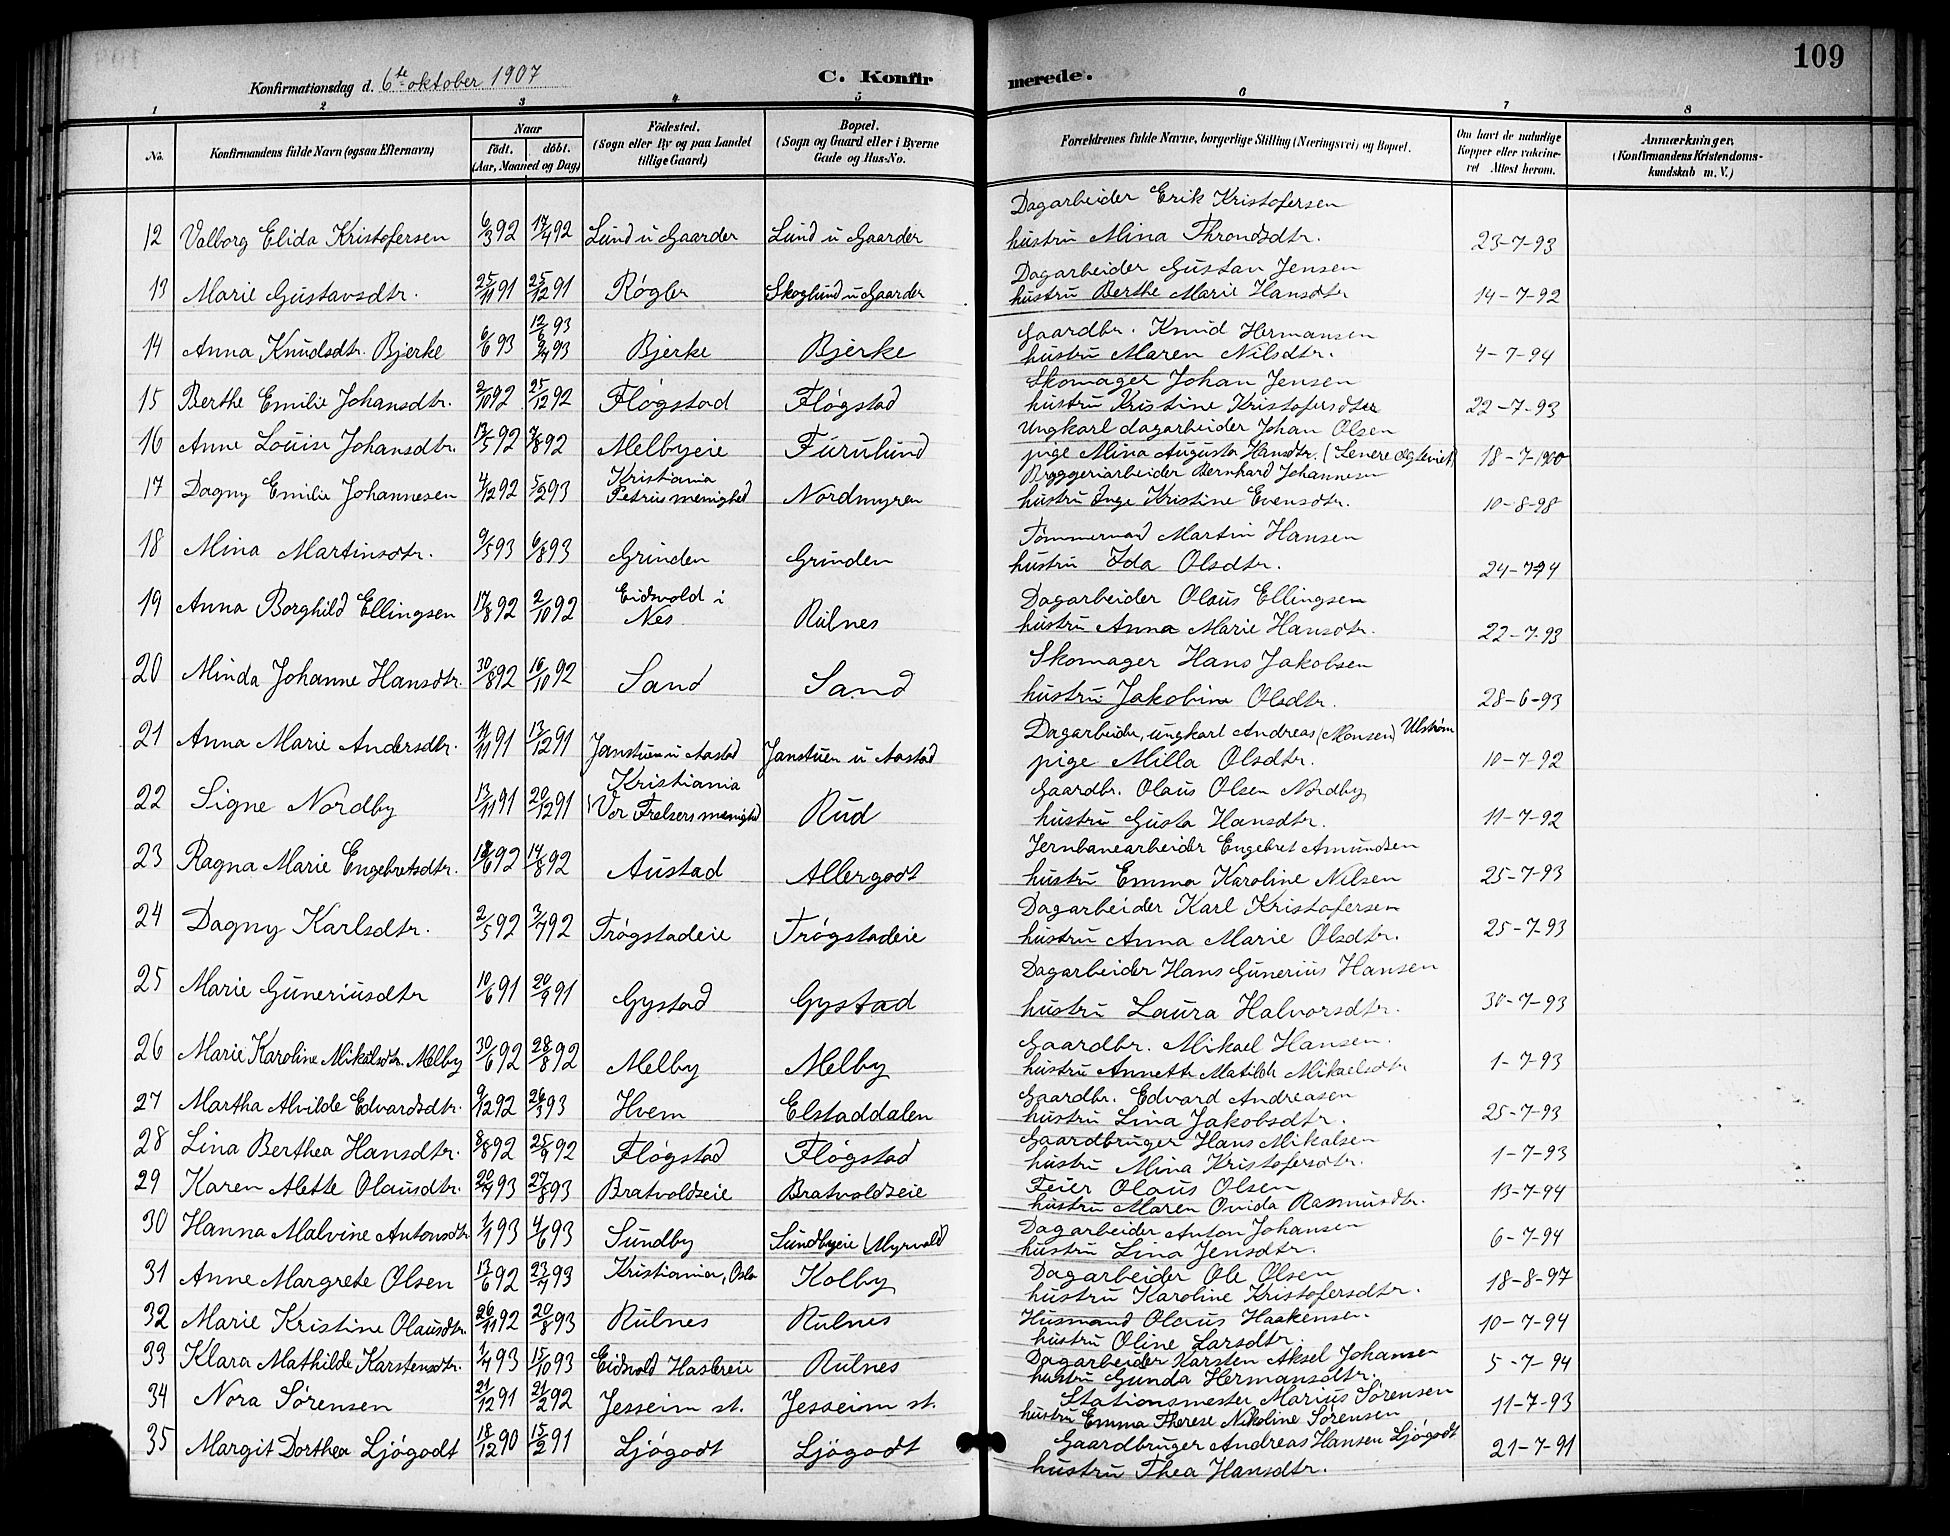 109
Konfirmationsdag d. 6te oktober 1907
C. Konfirmerede.
1 2 3 4 5 6 7 8
No. Konfirmandens fulde Navn (ogsaa Efternavn) Naar födt. döbt. (Aar, Maaned og Dag) Födested. (Sogn eller By og paa Landet tillige Gaard) Bopæl. (Sogn og Gaard eller i Byerne Gade og Hus-No. Forældrenes fulde Navne, borgerlige Stilling (Næringsvei) og Bopæl. Om havt de naturlige Kopper eller vaccineret Attest herom. Anmærkninger. (Konfirmandens Kristendomskundskab m. V.)
Dagarbeider Erik Kristofersen
12 Valborg Elida Kristofersen 6/3 92 17/4 92 Lund u Gaarder Lund u Gaarder hustru Mina Throndsdtr. 23-7-93
Dagarbeider Gustav Jensen
13 Marie Gustavsdtr. 25/11 91 25/12 91 Røgler Skoglund u Gaarder hustru Berthe Marie Hansdtr 14-7-92
12/6 93 Gaardbr. Knud Hermansen
14 Anna Knudsdtr. Bjerke 6/6 93 93 Bjerke Bjerke hustru Maren Nilsdtr. 4-7-94
Skomager Johan Jensen
15 Berthe Emilie Johansdtr. 2/10 92 25/12 92 Fløgstad Fløgstad hustru Kristine Kristofersdter 22-7-93
Ungkarl dagarbeider Johan Olsen
16 Anne Louise Johansdtr. 13/5 92 7/8 92 Melbyeie Furulund pige Mina Augusta Hansdtr. (Senere ægteviet) 18-7-1900
Kristiania Bryggeriarbeider Bernhard Johannesen
17 Dagny Emilie Johannesen 4/12 92 5/2 93 Petrus menighed Nordmyren hustru Inga Kristine Evensdtr. 10-8-98
Tømmermand Martin Hansen
18 Mina Martinsdtr. 9/5 93 6/8 93 Grinden Grinden hustru Ida Olsdtr. 24-7-94
Eidsvold i Dagarbeider Olaus Ellingsen
19 Anna Borghild Ellingsen 17/8 92 2/10 92 Nes Rulnes hustru Anna Marie Hansdtr. 22-7-93
Skomager Hans Jakobsen
20 Minda Johanne Hansdtr. 30/8 92 16/10 92 Sand Sand hustru Jakobine Olsdtr. 28-6-93
Dagarbeider, ungkarl Andreas (Monsen) Ulstrøm
21 Anna Marie Andersdtr. 11/11 91 13/12 91 Janstuen u Aastad Janstuen u Aastad pige Milla Olsdtr. 10-7-92
Kristiania Gaardbr. Olaus Olsen Nordby
22 Signe Nordby 13/11 91 20/12 91 Vor Frelsers menighd Rud hustru Gusta Hansdtr. 11-7-92
Jernbanearbeider Engebret Amundsen
23 Ragna Marie Engebretsdtr. 92 14/8 92 Austad Allergodt hustru Emma Karoline Nilsen 25-7-93
Dagarbeider Karl Kristofersen
24 Dagny Karlsdtr. 2/5 92 3/7 92 Trøgstadeie Trøgstadeie hustru Anna Marie Olsdtr. 25-7-93
Dagarbeider Hans Gunerius Hansen
25 Marie Guneriusdtr 10/6 91 20/9 91 Gystad Gystad hustru Laura Halvorsdtr. 30-7-93
Gaardbr. Mikael Hansen.
26 Marie Karoline Mikalsdtr. Melby 30/6 92 28/8 92 Melby Melby hustru Annette Matilde Mikaelsdtr 1-7-93
Gaardbr. Edvard Andreasen
27 Martha Alvilde Edvardsdtr. 9/12 92 26/3 93 Hvem Elstaddalen hustru Lina Jakobsdtr. 25-7-93
Gaardbruger Hans Mikalsen
28 Lina Berthea Hansdtr. 8/8 92 25/9 92 Fløgstad Fløgstad hustru Mina Kristofersdtr. 1-7-93
Feier Olaus Olsen
29 Karen Alette Olausdtr. 93 27/8 93 Bratvoldseie Bratvoldseie hustru Maren Ovida Rasmusdtr. 13-7-94
Dagarbeider Anton Johansen
30 Hanna Malvine Antonsdtr 1/1 93 4/6 93 Sundby Sundbyeie (Myrvold) hustru Lina Jensdtr. 6-7-94
Dagarbeider Ole Olsen
31 Anne Margrete Olsen 13/6 92 23/7 93 Kristiania, Oslo Kolby hustru Karoline Kristofersdtr. 18-8-97
Husmand Olaus Haakensen.
32 Marie Kristine Olausdtr. 26/11 92 20/8 93 Rulnes Rulnes hustru Oline Larsdtr. 10-7-94
Dagarbeider Karsten Aksel Johansen
33 Klara Mathilde Karstensdtr. 1/4 93 15/10 93 Eidsvold Haslereie Rulnes hustru Gunda Hermansdtr. 5-7-94
Stationsmester Marius Sørensen
34 Nora Sørensen 21/12 91 21/2 92 Jesseim st. Jesseim st. hustru Emma Therese Nikoline Sørensen 11-7-93
Gaardbruger Andreas Hansen Ljögodt
35 Margit Dorthea Ljögodt 18/12 90 15/2 91 Ljögodt Ljögodt hustru Thea Hansdtr. 21-7-91